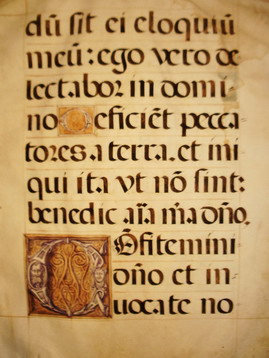 dū sit ei eloquiū
meū: ego vero de
lectabor in domi-
no Deficiēt pecca
tores a terra. et ini
qui ita vt nō sint:
benedic aīa mā dn̄o.
COn̄fitemini
dn̄o et in-
uocate no